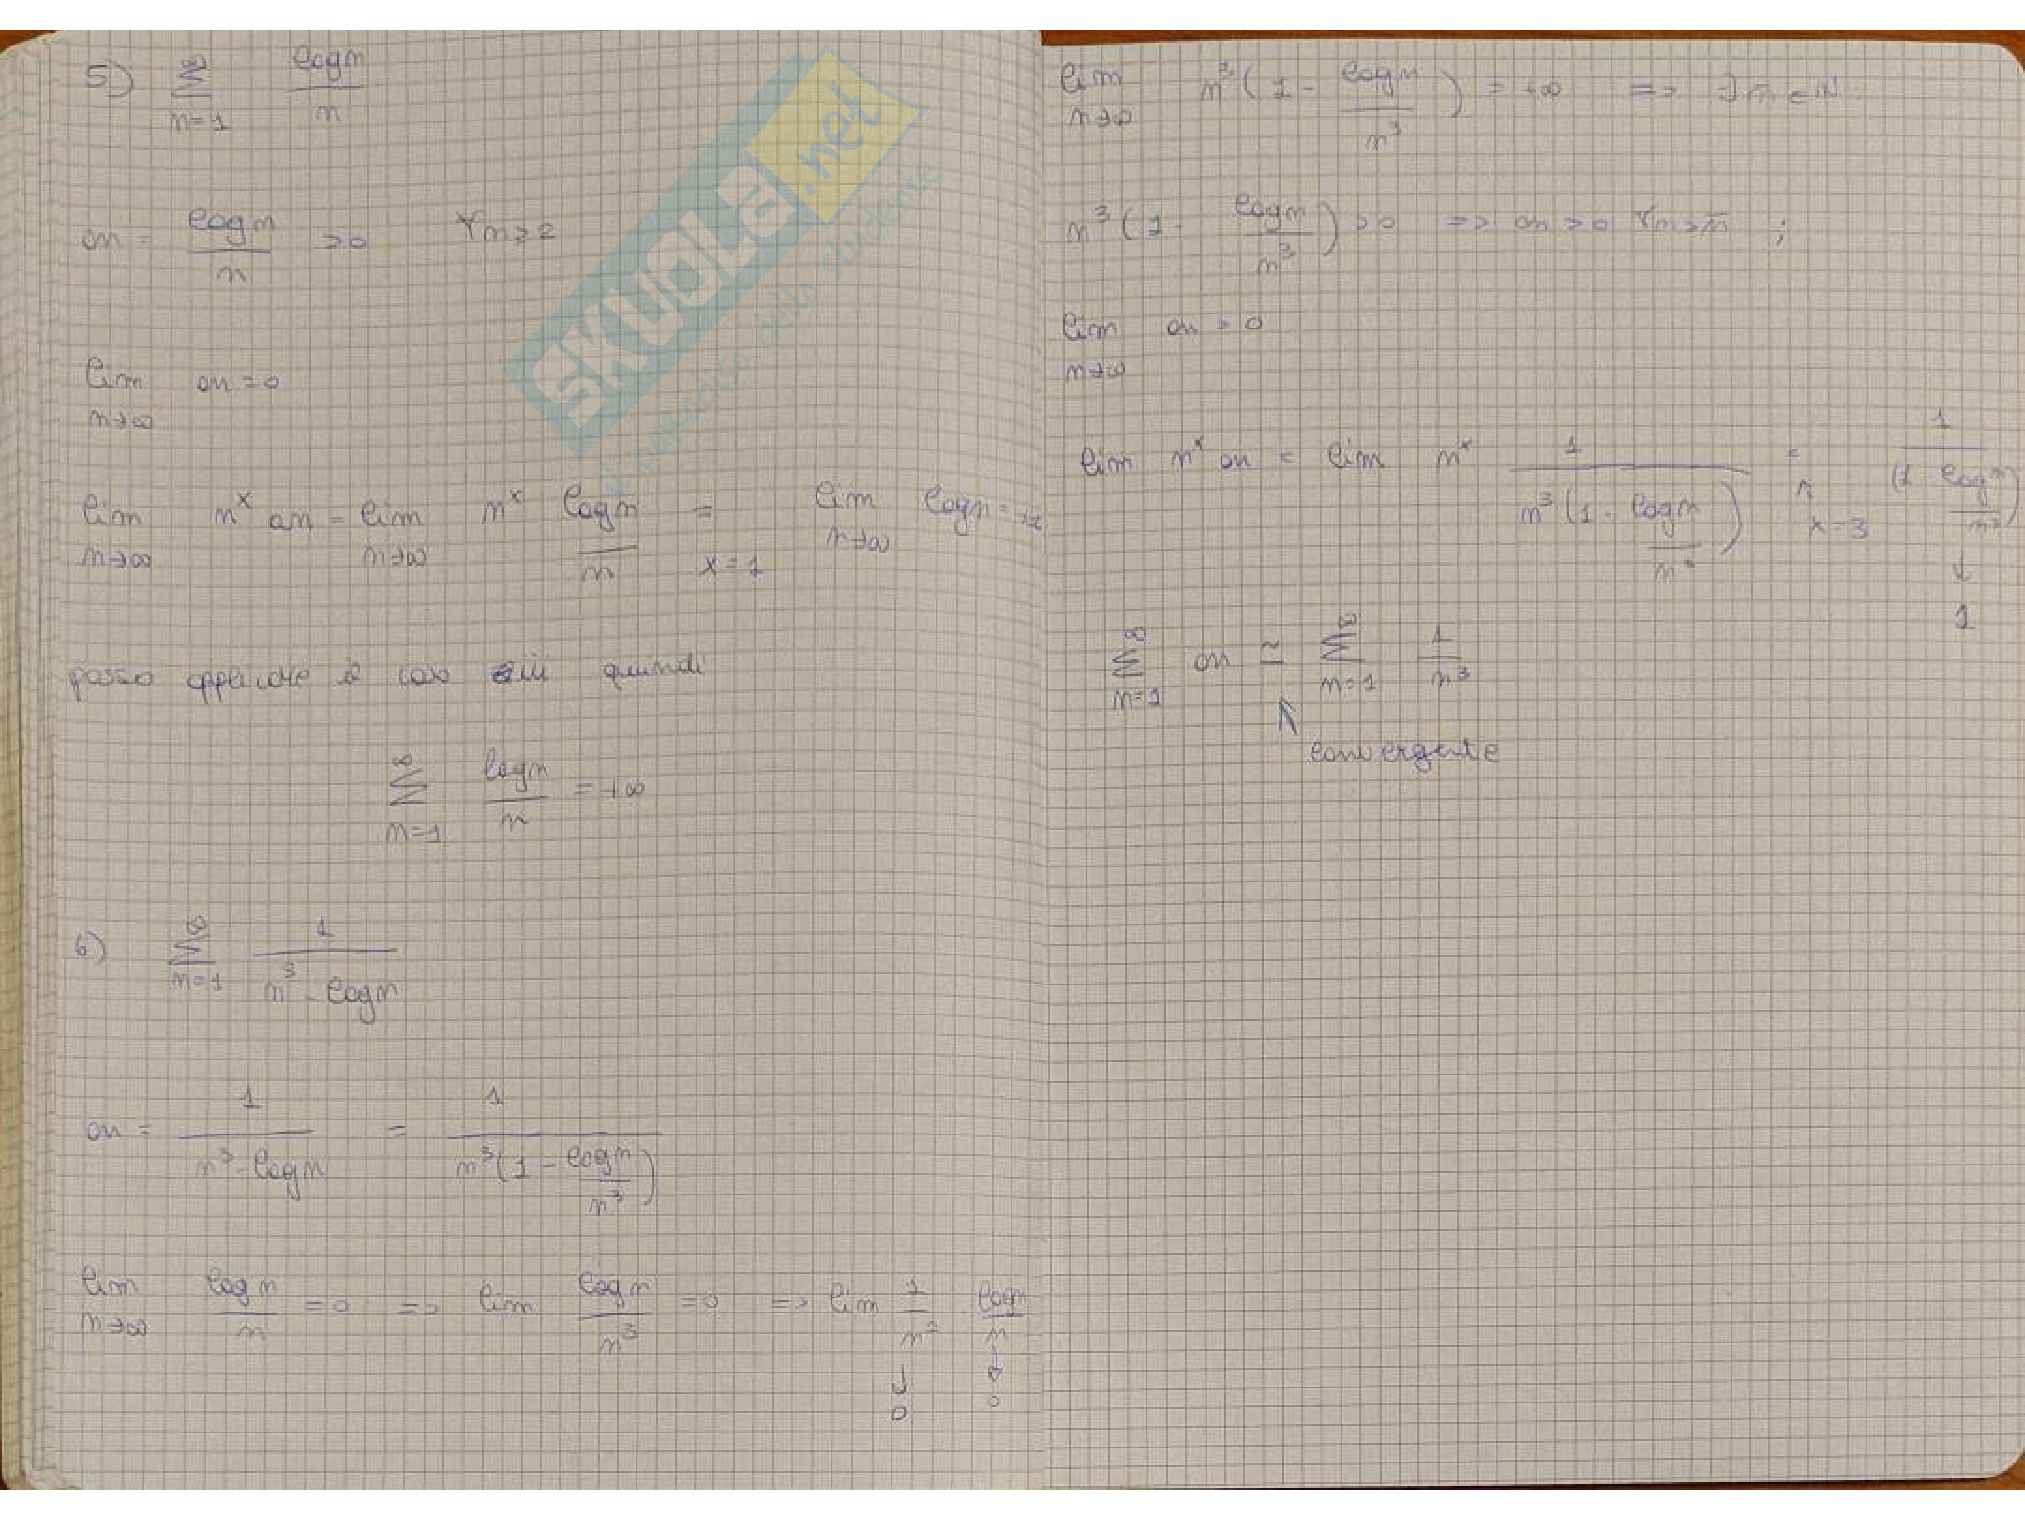 5) ∞ Σ n=1 log n / n
an = log n / n > 0 ∀n ≥ 2
lim n→∞ an = 0
lim n→∞ n^x an = lim n→∞ n^x log n / n = x=1 lim n→∞ log n =
posso applicare il caso iii quindi
∞ Σ n=1 log n / n = +∞
6) ∞ Σ n=1 1 / n^3 - log n
an = 1 / n^3 - log n = 1 / n^3 (1 - log n / n^3)
lim n→∞ log n / n = 0 => lim log n / n^3 = 0 => lim 1 / n^2 log n / n
↓ 0 ↓ 0
lim n→∞ n^3 (1 - log n / n^3) = +∞ => ∃ n̄ ∈ N
n^3 (1 - log n / n^3) > 0 => an > 0 ∀n > n̄ ;
lim n→∞ an = 0
lim n^x an = lim n^x 1 / n^3 (1 - log n / n^3) = ↑ x=3 1 / (1 log n / n^3) ↓ 1
∞ Σ n=1 an ≃ ∞ Σ n=1 1 / n^3
⇑ convergente
SKUOLA.net